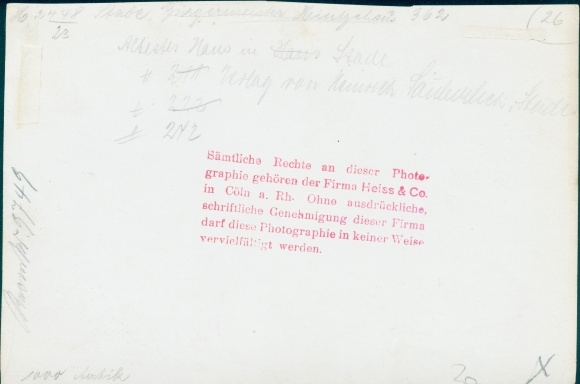 2448 Stade 362 (26
23
Ältestes Haus in Haus Stade
# 210 Verlag von Heinrich Stade
# 223
# 242
Sämtliche Rechte an dieser Photo-
graphie gehören der Firma Heiss & Co.
in Cöln a. Rh. Ohne ausdrückliche,
schriftliche Genehmigung dieser Firma
darf diese Photographie in keiner Weise
vervielfältigt werden.
1000 Antik
X